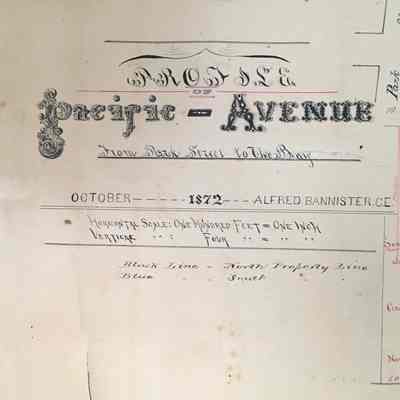 PROFILE
OF
Pacific - Avenue
From Park Street to The Bay
OCTOBER ----- 1872 ---- ALFRED BANNISTER. C.E.
HORIZONTAL SCALE: ONE HUNDRED FEET = ONE INCH
VERTICAL " : FOUR " = " "
Black Line - North Property Line
Blue " - South " "
Park